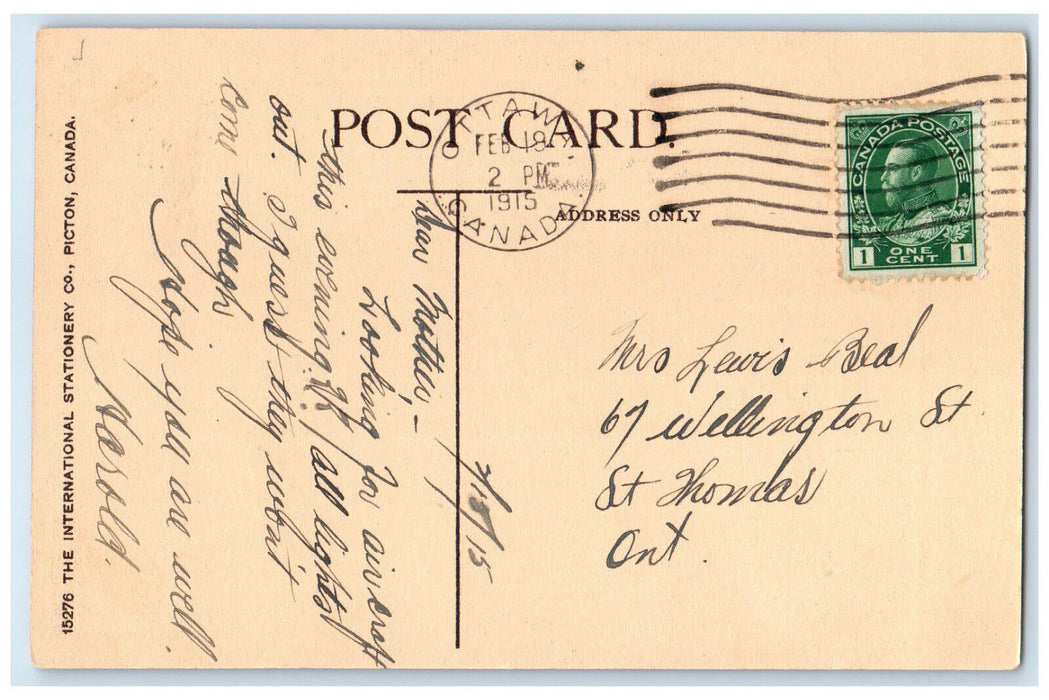 POST CARD.
OTTAWA
FEB 19
2 PM
1915
CANADA
CANADA POSTAGE
1 ONE CENT 1
ADDRESS ONLY
Dear Mother –
Looking for aircraft
this evening. & all lights
out. I guess they won't
come though
Hope you are well.
Harold.
Mrs Lewis Beal
67 Wellington St.
St Thomas
Ont.
15276 THE INTERNATIONAL STATIONERY CO., PICTON, CANADA.